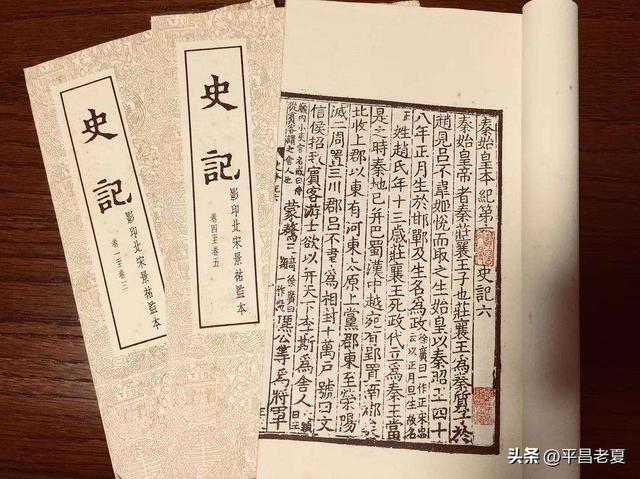 史記
影印北宋景祐監本
卷一至卷三
史記
影印北宋景祐監本
卷四至卷五
秦始皇本紀第 史記六
秦始皇帝者秦莊襄王子也莊襄王爲秦質子於
趙見呂不韋姬悅而取之生始皇以秦昭王四十
八年正月生於邯鄲及生名爲政徐廣曰一作正宋忠云以正月旦生故名正
姓趙氏年十三歲莊襄王死政代立爲秦王當
是之時秦地已并巴蜀漢中越宛有郢置南郡矣
北收上郡以東有河東太原上黨郡東至滎陽
滅二周置三川郡呂不韋爲相封十萬戶號曰文
信侯招致賓客游士欲以并天下李斯爲舍人
從賓客謂之舍人也 蒙驁 徐廣曰 一作 麃公等爲將軍
头条 @平昌老夏